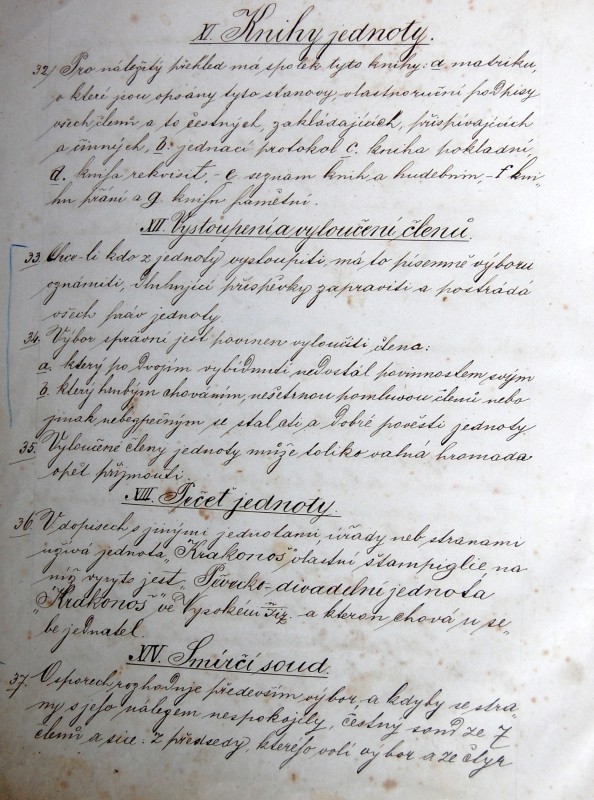 XI. Knihy jednoty.
32) Pro náležitý přehled má spolek tyto knihy: a matriku,
v které jsou opsány tyto stanovy, vlastnoruční podpisy
všech členů a to čestných, zakládajících, přispívajících
a činných, b. jednací protokol c. kniha pokladní,
d. kniha rekvisit, - e seznam knih a hudebnin, - f kni„
hu přání a g. knihu pamětní.
XII. Vystoupení a vyloučení členů.
33. Chce-li kdo z jednoty vystoupiti, má to písemně výboru
oznámiti, dluhující příspěvky zapraviti a postrádá
všech práv jednoty.
34. Výbor správní jest povinen vyloučiti člena:
a. který po dvojím vybídnutí nedostál povinnostem svým
b. který hrubým chováním, nešetrnou pomluvou členů nebo
jinak nebezpečným se stal cti a dobré pověsti jednoty.
35. Vyloučené členy jednoty může toliko valná hromada
opět přijmouti.
XIII. Pečeť jednoty.
36. V dopisech s jinými jednotami, úřady neb stranami
užívá jednota „Krakonoš" vlastní štampiglie na
níž vyryto jest „Pěvecko-divadelní jednota
„Krakonoš" ve Vysokém n/Jiz. a kterou chová u se„
be jednatel.
XIV. Smírčí soud.
37. O sporech rozhoduje především výbor a kdyby se stra„
ny s jeho nálezem nespokojily, čestný soud ze 7
členů a sice: z předsedy, kterého volí výbor a ze čtyr